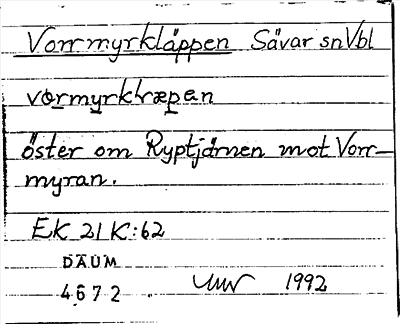 Vorrmyrkläppen Sävar sn Vbl
vormyrklæpen
öster om Ryptjärnen mot Vorr-
myran.
EK 21 K:62
DAUM
4672 1992